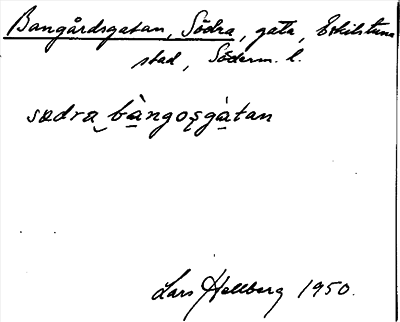 Bangårdsgatan, Södra, gata, Eskilstuna
stad, Söderm. l.
sœdra bàngos̨gàtan
Lars Hellberg 1950.